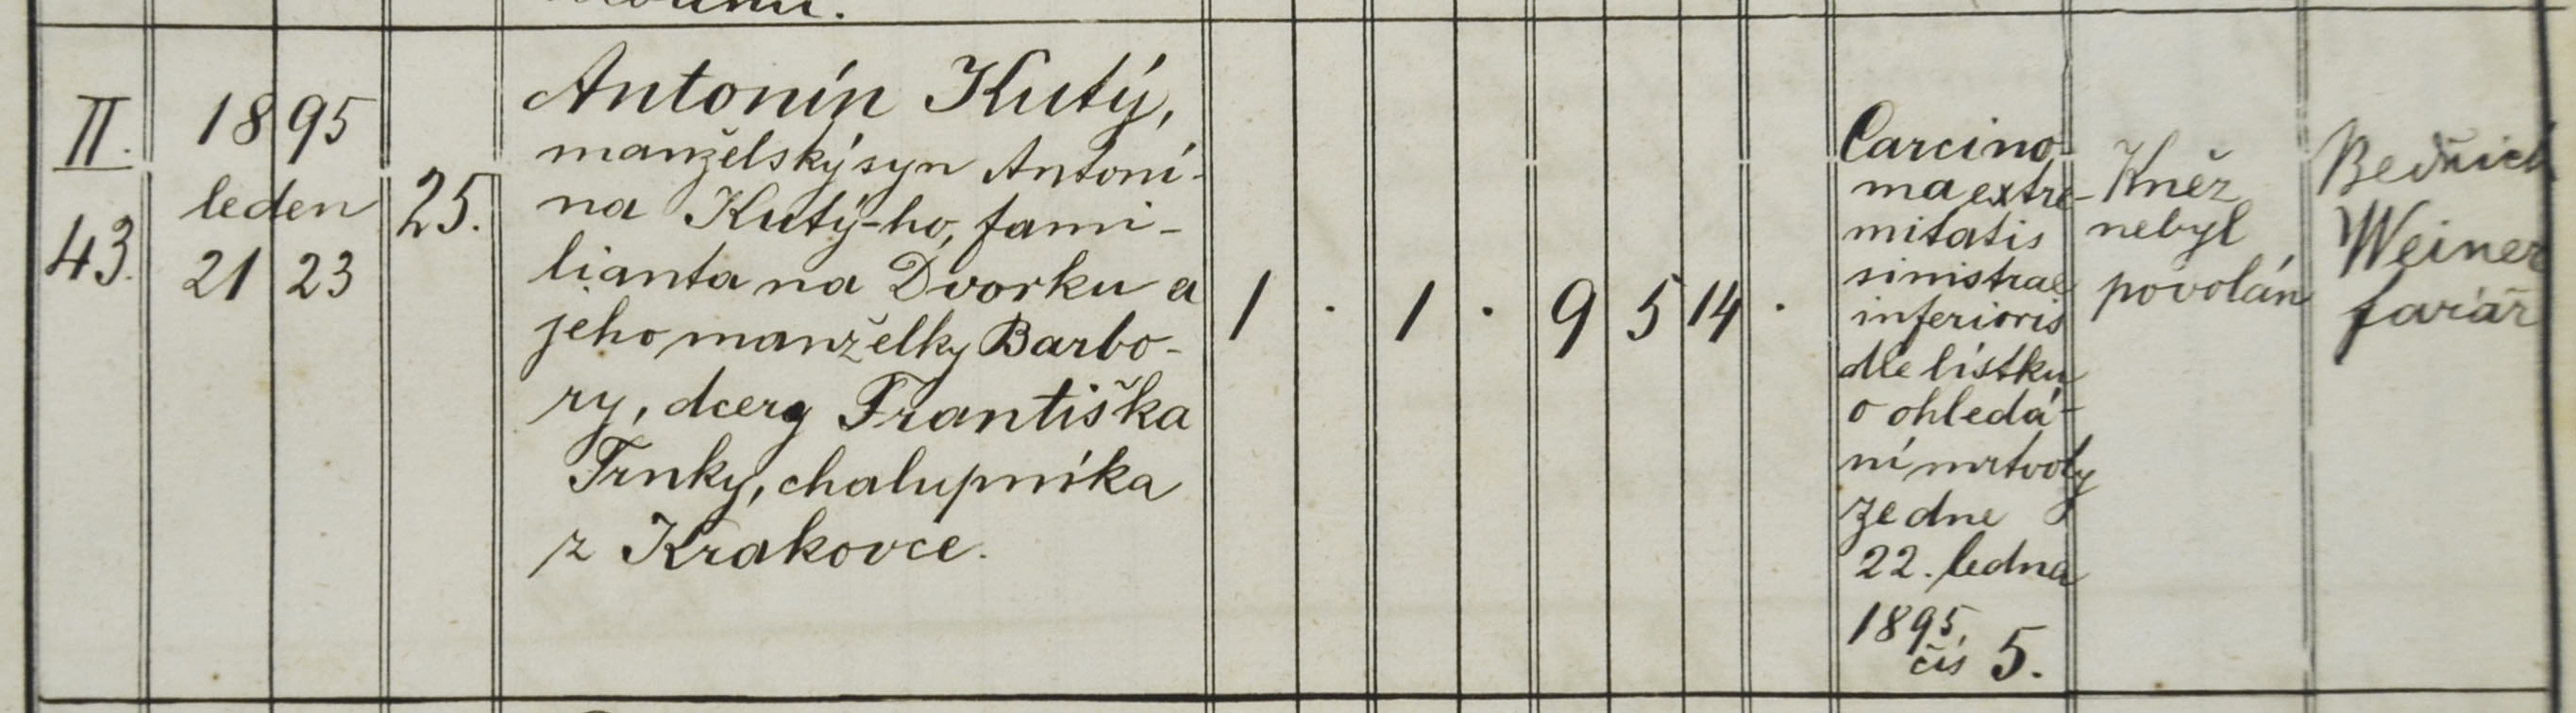 II.
43.
1895
leden
21 23
25.
Antonín Kutý,
manželský syn Antoní-
na Kutý-ho, fami-
lianta na Dvorku a
jeho manželky Barbo-
ry, dcery Františka
Trnky, chalupníka
z Krakovce.
1 . 1 . 9 5 14 .
Carcino
ma extre-
mitatis
sinistrae
inferioris
dle lístku
o ohledá-
ní mrtvoly
ze dne
22. ledna
1895,
čís 5.
Kněz
nebyl
povolán
Bedřich
Weiner
farář